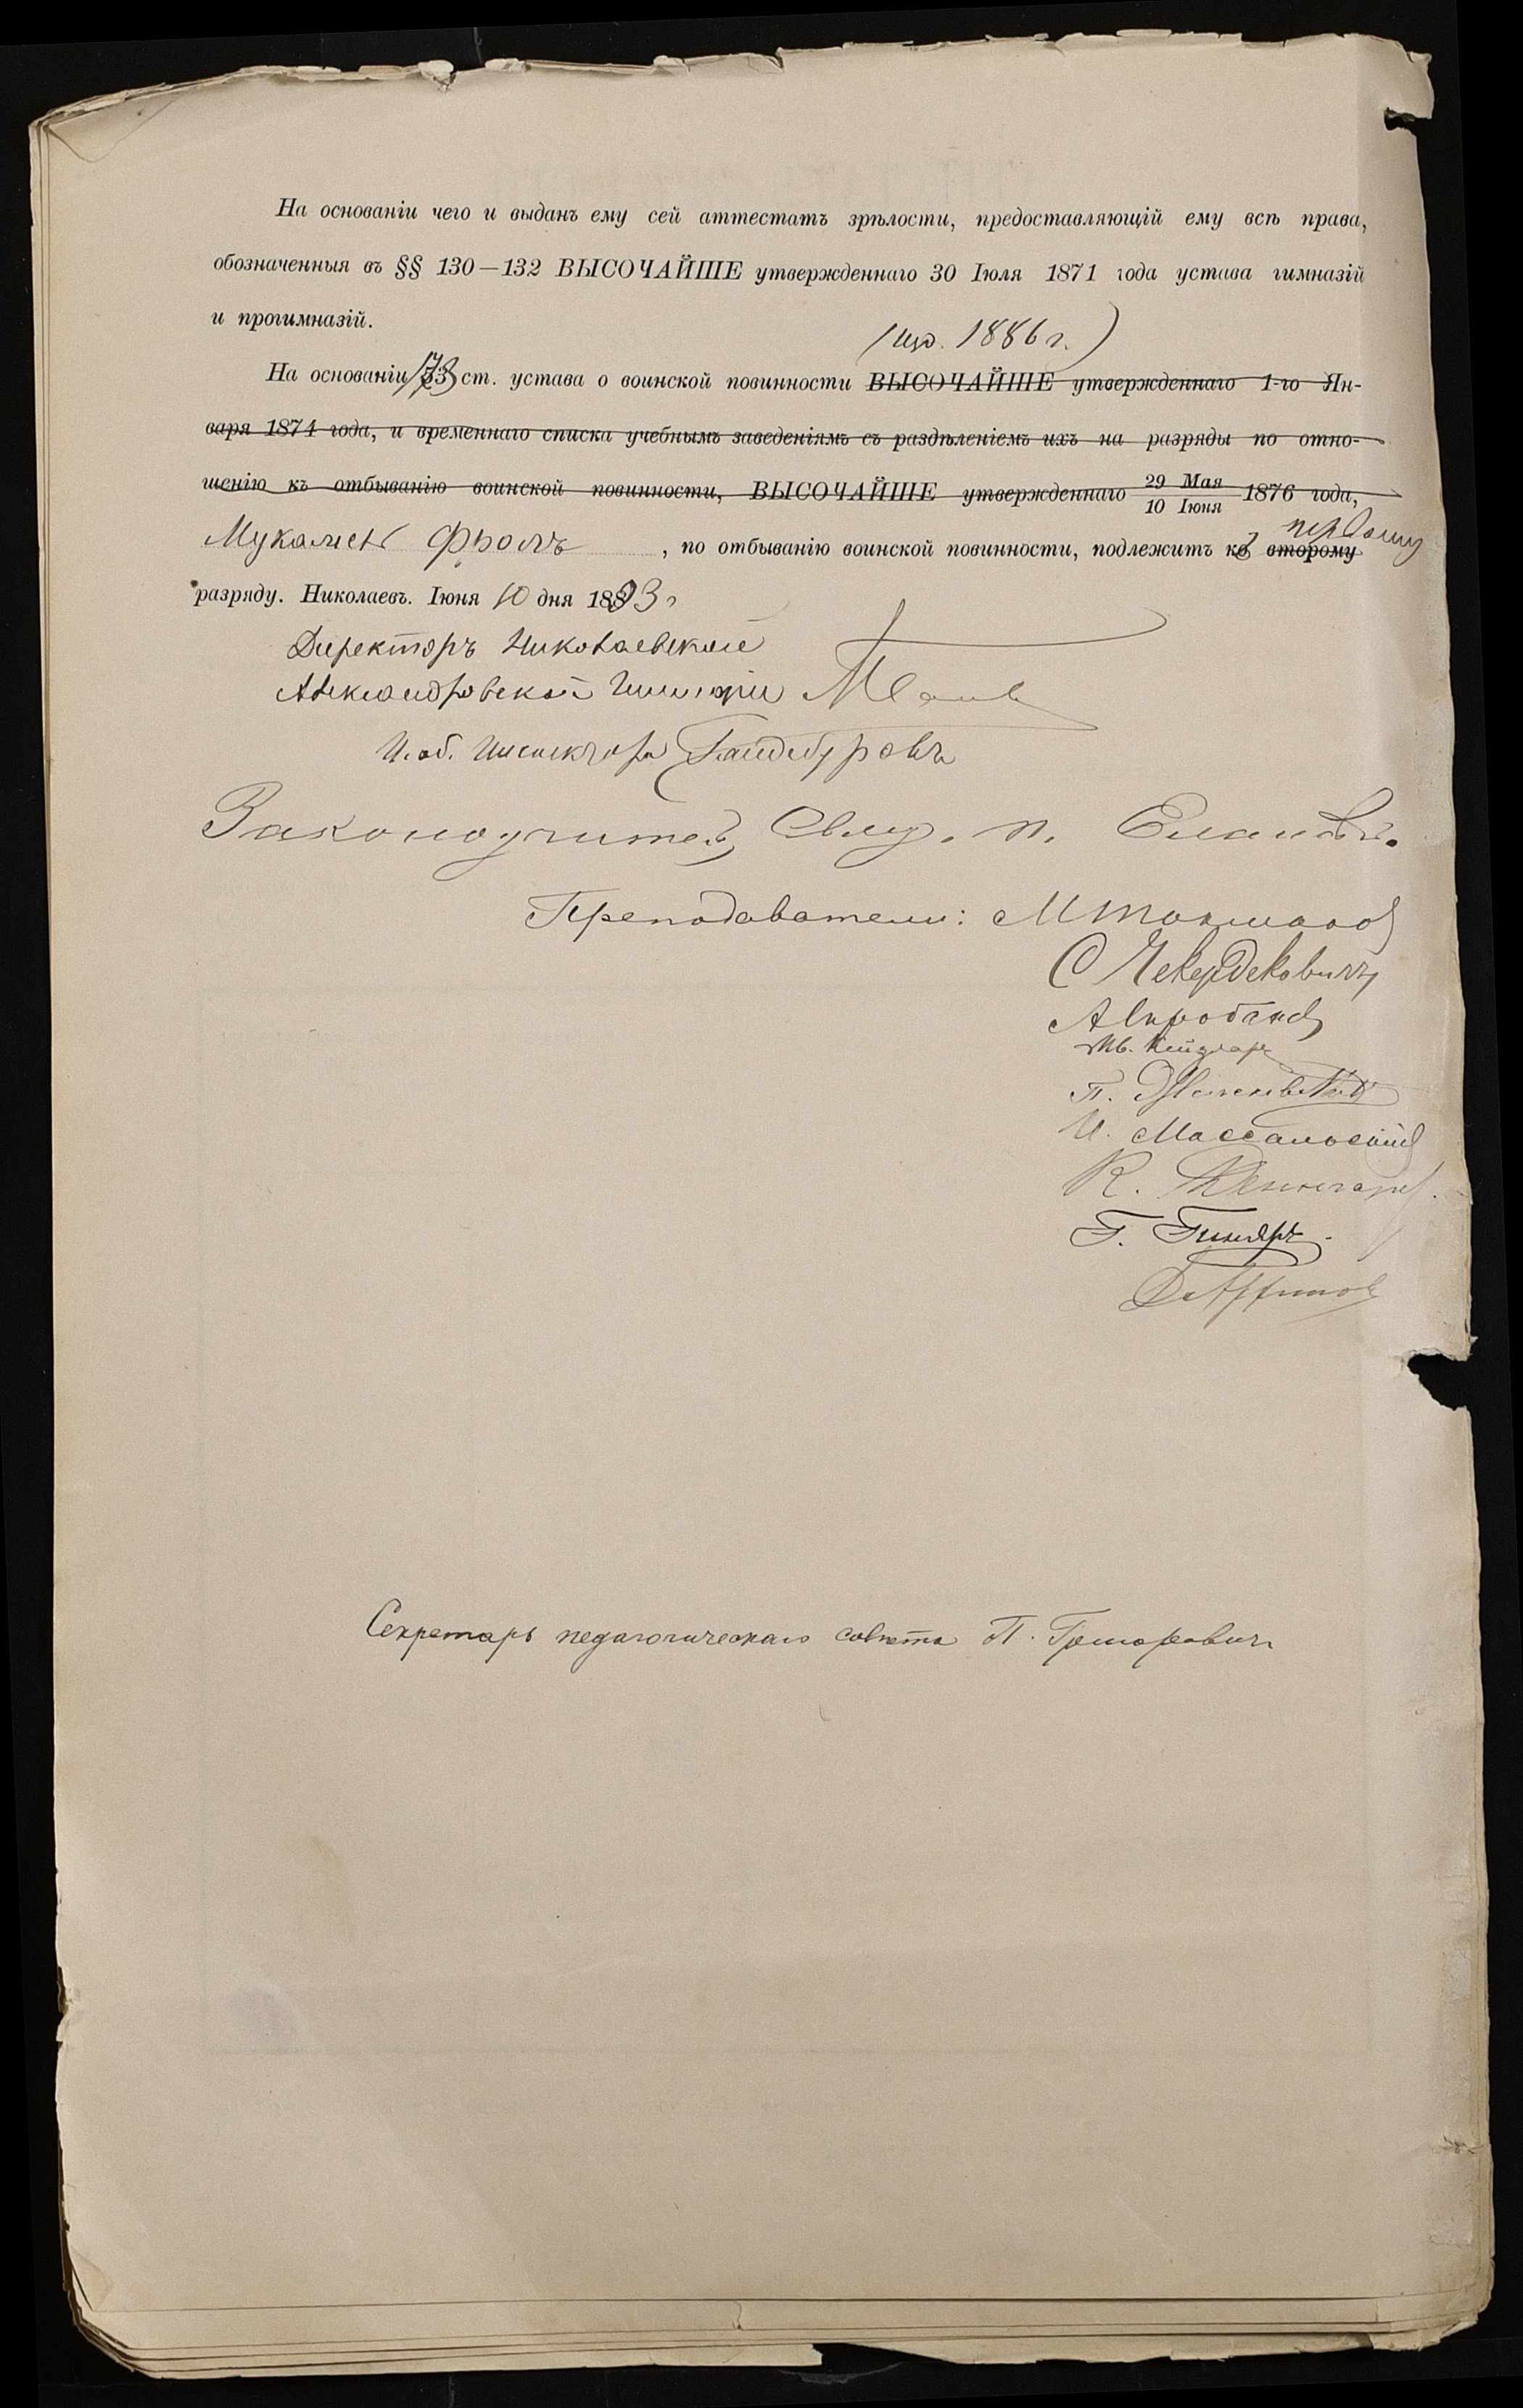 На основаніи чего и выданъ ему сей аттестатъ зрѣлости, предоставляющій ему всѣ права,
обозначенныя въ §§ 130—132 ВЫСОЧАЙШЕ утвержденнаго 30 Іюля 1871 года устава гимназій
и прогимназій.
(изд. 1886 г.)
На основаніи ст. устава о воинской повинности ВЫСОЧАЙШЕ утвержденнаго 1-го Ян-
варя 1874 года, и временнаго списка учебнымъ заведеніямъ съ раздѣленіемъ ихъ на разряды по отно-
шенію къ отбыванію воинской повинности, ВЫСОЧАЙШЕ утвержденнаго 29 Мая 10 Іюня 1876 года,
первому
, по отбыванію воинской повинности, подлежитъ къ второму
разряду. Николаевъ. Іюня 10 дня 1893 г
Директоръ Николаевской
Александровской Гимназіи
И. об. Инспектора Гайдебуровъ
Законоучитель Свящ. п.
Преподаватели:
С Чекердековичъ
А
Ив.
П.
И. Массальскій
К.
Г.
Секретарь педагогическаго совѣта П. Григоровичъ